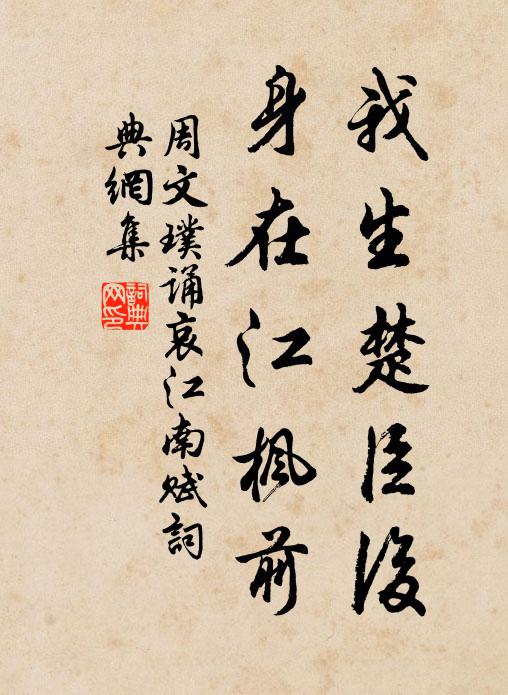 我生楚臣後
身在江楓前
周文璞誦哀江南賦詞
典網集
詞典網印